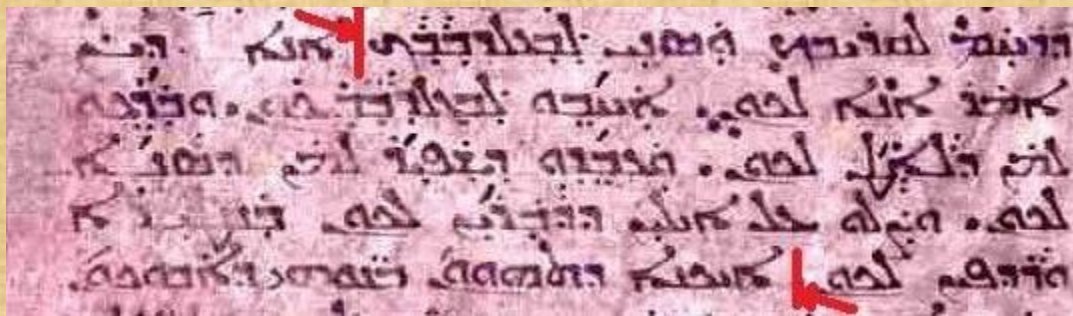 ܕܪܚܡ ܠܩܪܝܒܟ ܘܣܢܝ ܠܒܥܠܕܒܒܟ ܐܢܐ ܕܝܢ
ܐܡܪ ܐܢܐ ܠܟܘܢ. ܐܚܒܘ ܠܒܥܠܕܒܒܝܟܘܢ. ܘܒܪܟܘ
ܠܡܢ ܕܠܐܛ ܠܟܘܢ. ܘܥܒܕܘ ܕܫܦܝܪ ܠܡܢ ܕܣܢܐ
ܠܟܘܢ. ܘܨܠܘ ܥܠ ܐܝܠܝܢ ܕܕܒܪܝܢ ܠܟܘܢ ܒܩܛܝܪܐ
ܘܪܕܦܝܢ ܠܟܘܢ ܐܝܟܢܐ ܕܬܗܘܘܢ ܒܢܘܗܝ ܕܐܒܘܟܘܢ